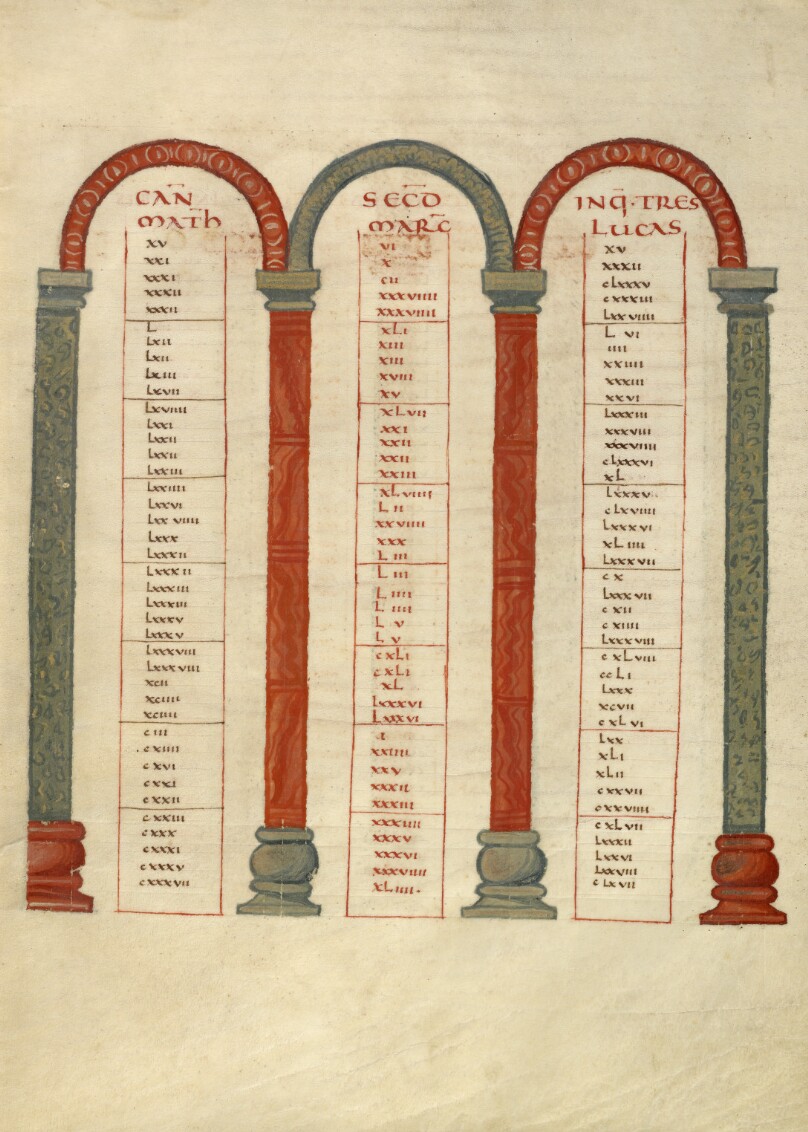 CAN̄
MATH̄
xv
xxi
xxxi
xxxii
xxxii
L
Lxii
Lxii
Lxiii
Lxvii
Lxviiii
Lxxi
Lxxii
Lxxii
Lxxiii
Lxxiiii
Lxxvi
Lxxviiii
Lxxx
Lxxxii
Lxxxii
Lxxxiii
Lxxxiii
Lxxxv
Lxxxv
Lxxxviii
Lxxxviii
xcii
xciiii
xciiii
ciii
cxiiii
cxvi
cxxi
cxxii
cxxiii
cxxx
cxxxi
cxxxv
cxxxvii
SEC̄D
MARC̄
vi
x
cii
xxxviiii
xxxviiii
xLi
xiii
xiii
xviii
xv
xLvii
xxi
xxii
xxii
xxiii
xLviiii
Lii
xxviiii
xxx
Liii
Liii
Liiii
Liiii
Lv
Lv
cxLi
cxLi
xL
Lxxxvi
Lxxxvi
i
xxiiii
xxv
xxxii
xxxiii
xxxiiii
xxxv
xxxvi
xxxviiii
xLiiii·
INQ̄·TRES
LUCAS
xv
xxxii
cLxxxv
cxxxiii
Lxxviiii
Lvi
iiii
xxiiii
xxxiii
xxvi
Lxxxiii
xxxviii
xxxviiii
cLxxxvi
xL
Lxxxv
cLxviiii
Lxxxvi
xLiiii
Lxxxvii
cx
Lxxxvii
cxii
cxiiii
Lxxxviii
cxLviii
ccLi
Lxxx
xcvii
cxLvi
Lxx
xLi
xLii
cxxvii
cxxviiii
cxLvii
Lxxxii
Lxxvi
Lxxviii
cLxvii